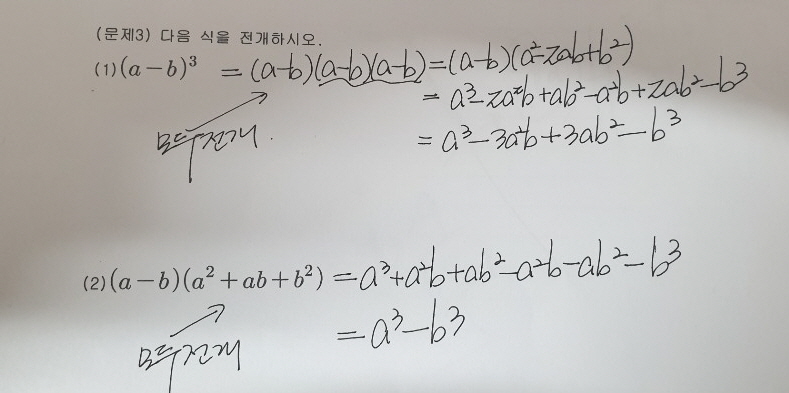 (문제3) 다음 식을 전개하시오.
(1) (a−b)³ = (a-b)(a-b)(a-b) = (a-b)(a²-2ab+b²)
= a³-2a²b+ab²-a²b+2ab²-b³
모두 전개.
= a³-3a²b+3ab²-b³
(2) (a−b)(a²+ab+b²) = a³+a²b+ab²-a²b-ab²-b³
= a³-b³
모두 전개